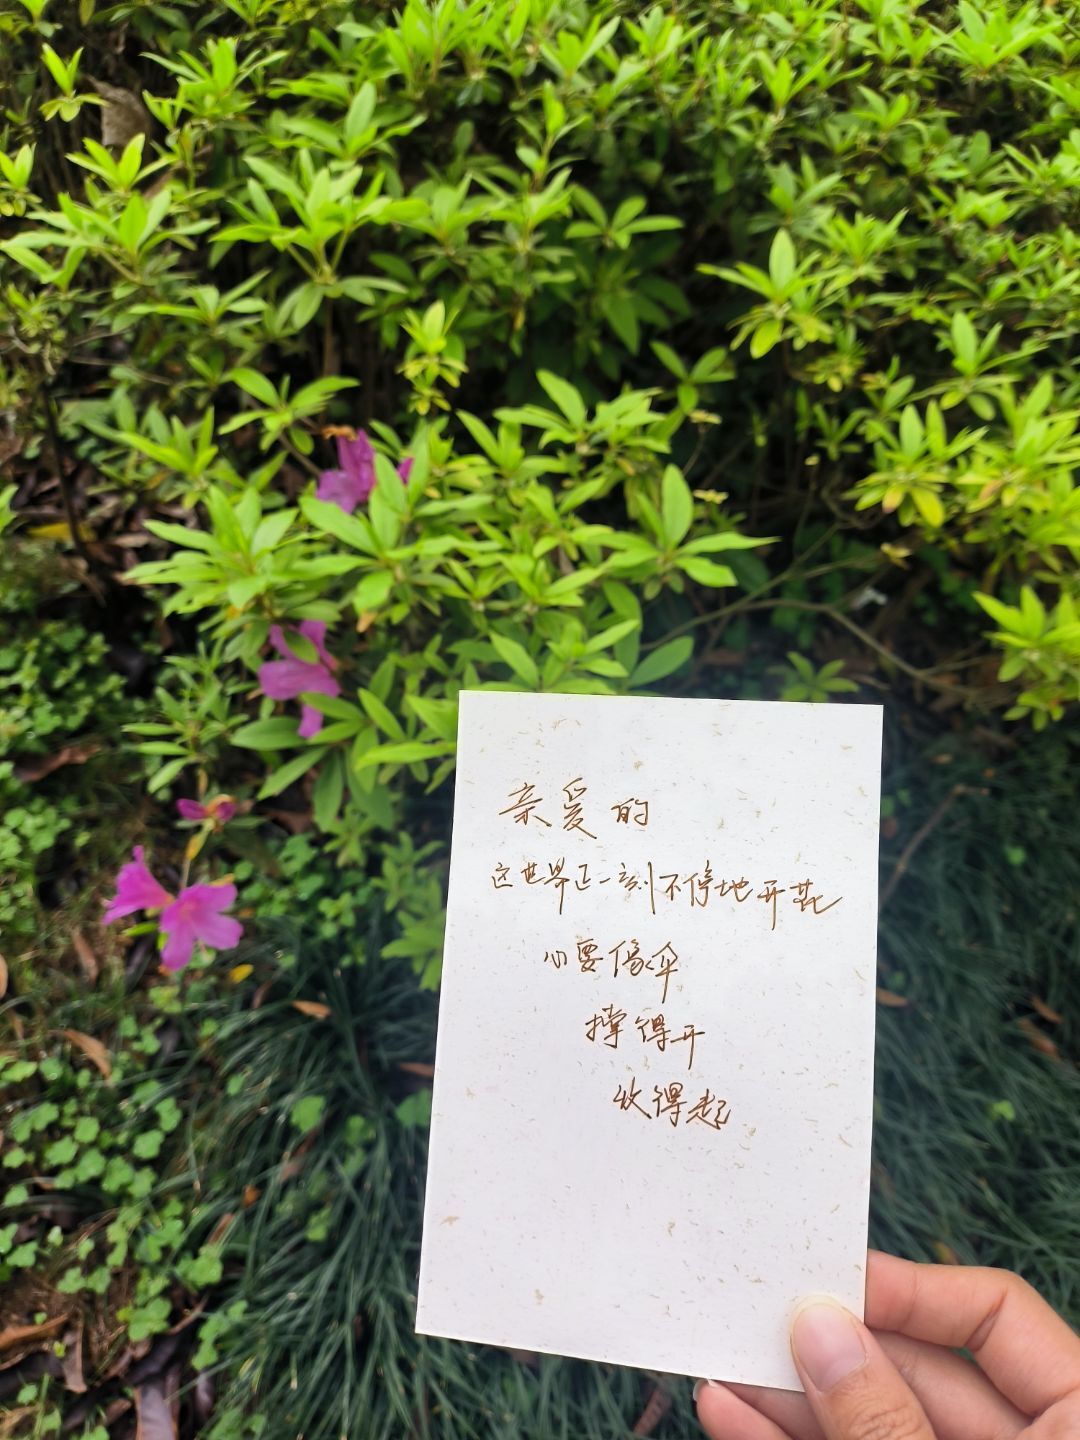 亲爱的
这世界正一刻不停地开花
心要像伞
撑得开
收得起